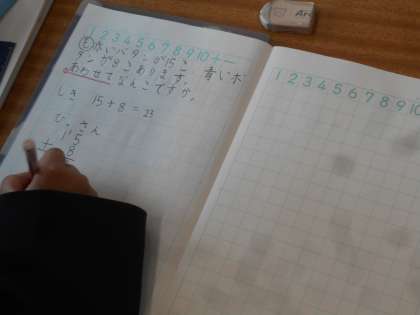 1 2 3 4 5 6 7 8 9 10 + −
も 水いボタンが15こ 青いボ
タンが8こあります。
あわせてなんこですか。
しき 15+8=23
ひっさん
15
+ 8
1 2 3 4 5 6 7 8 9 10